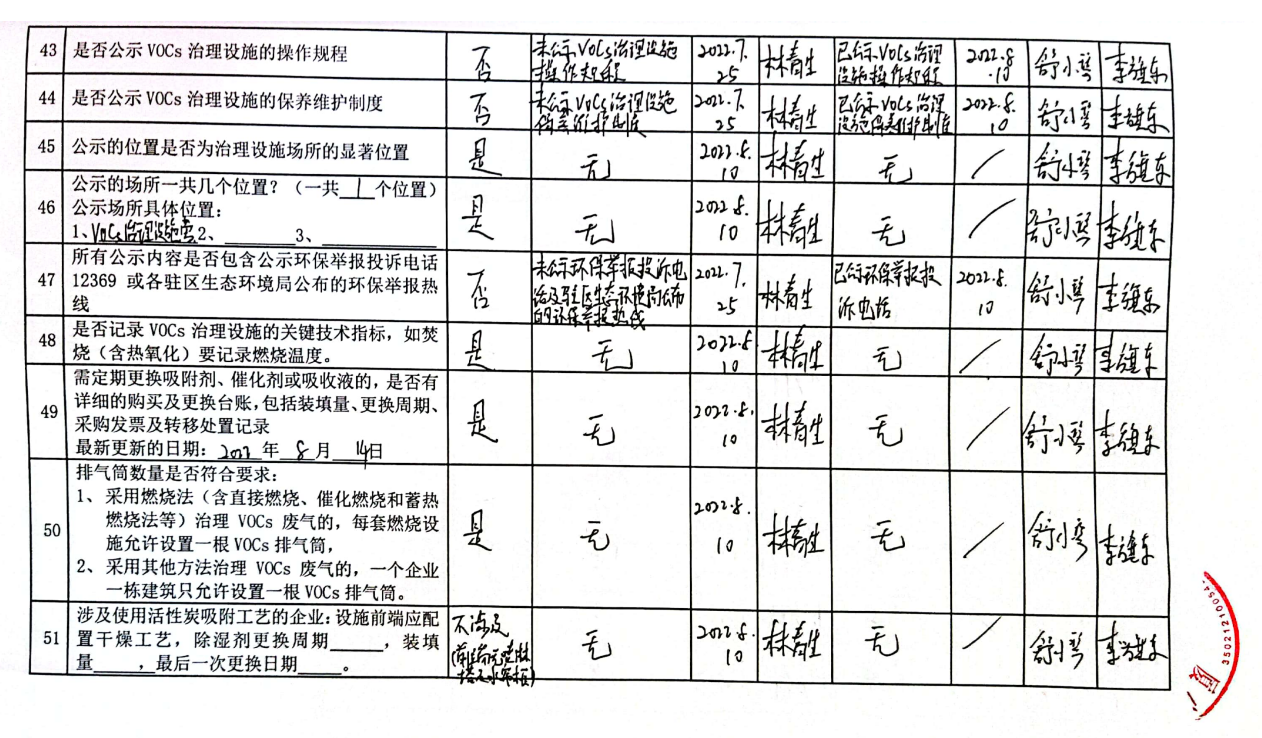 43 是否公示 VOCs 治理设施的操作规程 否 未公示VOCs治理设施 2022.7. 林青生 已公示VOCs治理 2022.8 舒小琴 李雄东
操作规程 25 设施操作规程 .10
44 是否公示 VOCs 治理设施的保养维护制度 否 未公示VOCs治理设施 2022.7. 林青生 已公示VOCs治理 2022.8. 舒小琴 李雄东
保养维护制度 25 设施保养维护制度 10
45 公示的位置是否为治理设施场所的显著位置 是 无 2022.8. 林青生 无 / 舒小琴 李雄东
10
公示的场所一共几个位置？（一共 1 个位置）
46 公示场所具体位置： 是 无 2022.8. 林青生 无 / 舒小琴 李雄东
1、VOCs治理设施旁2、 3、 10
所有公示内容是否包含公示环保举报投诉电话 未公示环保举报投诉电
47 12369 或各驻区生态环境局公布的环保举报热 否 话及驻区生态环境局公布 2022.7. 林青生 已公示环保举报投 2022.8. 舒小琴 李雄东
线 的环保举报热线 25 诉电话 10
48 是否记录 VOCs 治理设施的关键技术指标，如焚 是 无 2022.8. 林青生 无 / 舒小琴 李雄东
烧（含热氧化）要记录燃烧温度。 10
需定期更换吸附剂、催化剂或吸收液的，是否有
49 详细的购买及更换台账，包括装填量、更换周期、 是 无 2022.8. 林青生 无 / 舒小琴 李雄东
采购发票及转移处置记录 10
最新更新的日期： 年 8 月 14日
排气筒数量是否符合要求：
1、 采用燃烧法（含直接燃烧、催化燃烧和蓄热
燃烧法等）治理 VOCs 废气的，每套燃烧设
50 施允许设置一根 VOCs 排气筒， 是 无 2022.8. 林青生 无 / 舒小琴 李雄东
2、 采用其他方法治理 VOCs 废气的，一个企业 10
一栋建筑只允许设置一根 VOCs 排气筒。
涉及使用活性炭吸附工艺的企业：设施前端应配 不涉及
51 置干燥工艺，除湿剂更换周期 ，装填 无 2022.8. 林青生 无 / 舒小琴 李雄东
量 ，最后一次更换日期 。 10
35021210054